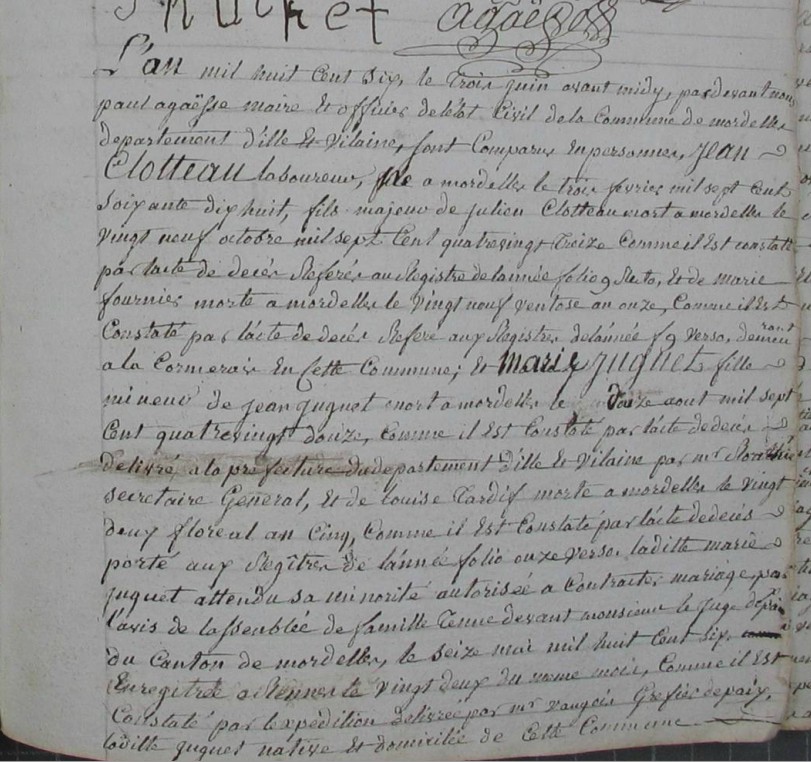 Juguet agaësse
L'an mil huit Cent Six, le Trois juin avant midy, pardevant nous
paul agaësse maire Et officier delétat Civil dela Commune de mordelles
departement d'ille Et Vilaine, sont Comparus Enpersonnes, Jean
Clotteau laboureur, né a mordelles le trois fevrier mil sept Cent
Soixante dixhuit, fils majeur de julien Clotteau mort a mordelles le
Vingt neuf octobre mil sept Cent quatrevingt Treize Comme il Est constaté
par lacte de decés Referés au Registre de lannée folio 9 Recto, Et de marie
fournier morte a mordelles le Vingt neuf ventose an onze, Comme il Est
Constaté par l'acte de decés Refere aux Registres delannée f 9 verso, demeurant
a la Cormerais En Cette Commune; Et Marie juguet fille
mineur de jean juguet mort a mordelles le douze aout mil sept
Cent quatrevingt douze, Comme il Est Constaté par lacte dedecés
délivré a la prefecture du departement d'ille Et Vilaine par mr
Secretaire General, Et de louise Tardif morte a mordelles le Vingt
deux floreal an Cinq, Comme il Est Constaté par lacte dedecés
porté aux Regîtres de lannée folio onze verso, laditte marie
juguet attendu sa minorité autorisée a Contracter mariage, par
l'avis de lassemblée de famille Tenue devant monsieur le juge depaix
du Canton de mordelles, le Seize mai mil huit Cent Six,
Enregitrée a Rennes le Vingt deux du meme mois, Comme il Est
Constaté par lexpédition delivrée par mr vaugeois Grefier depaix,
laditte juguet native Et domiciliée de Cette Commune